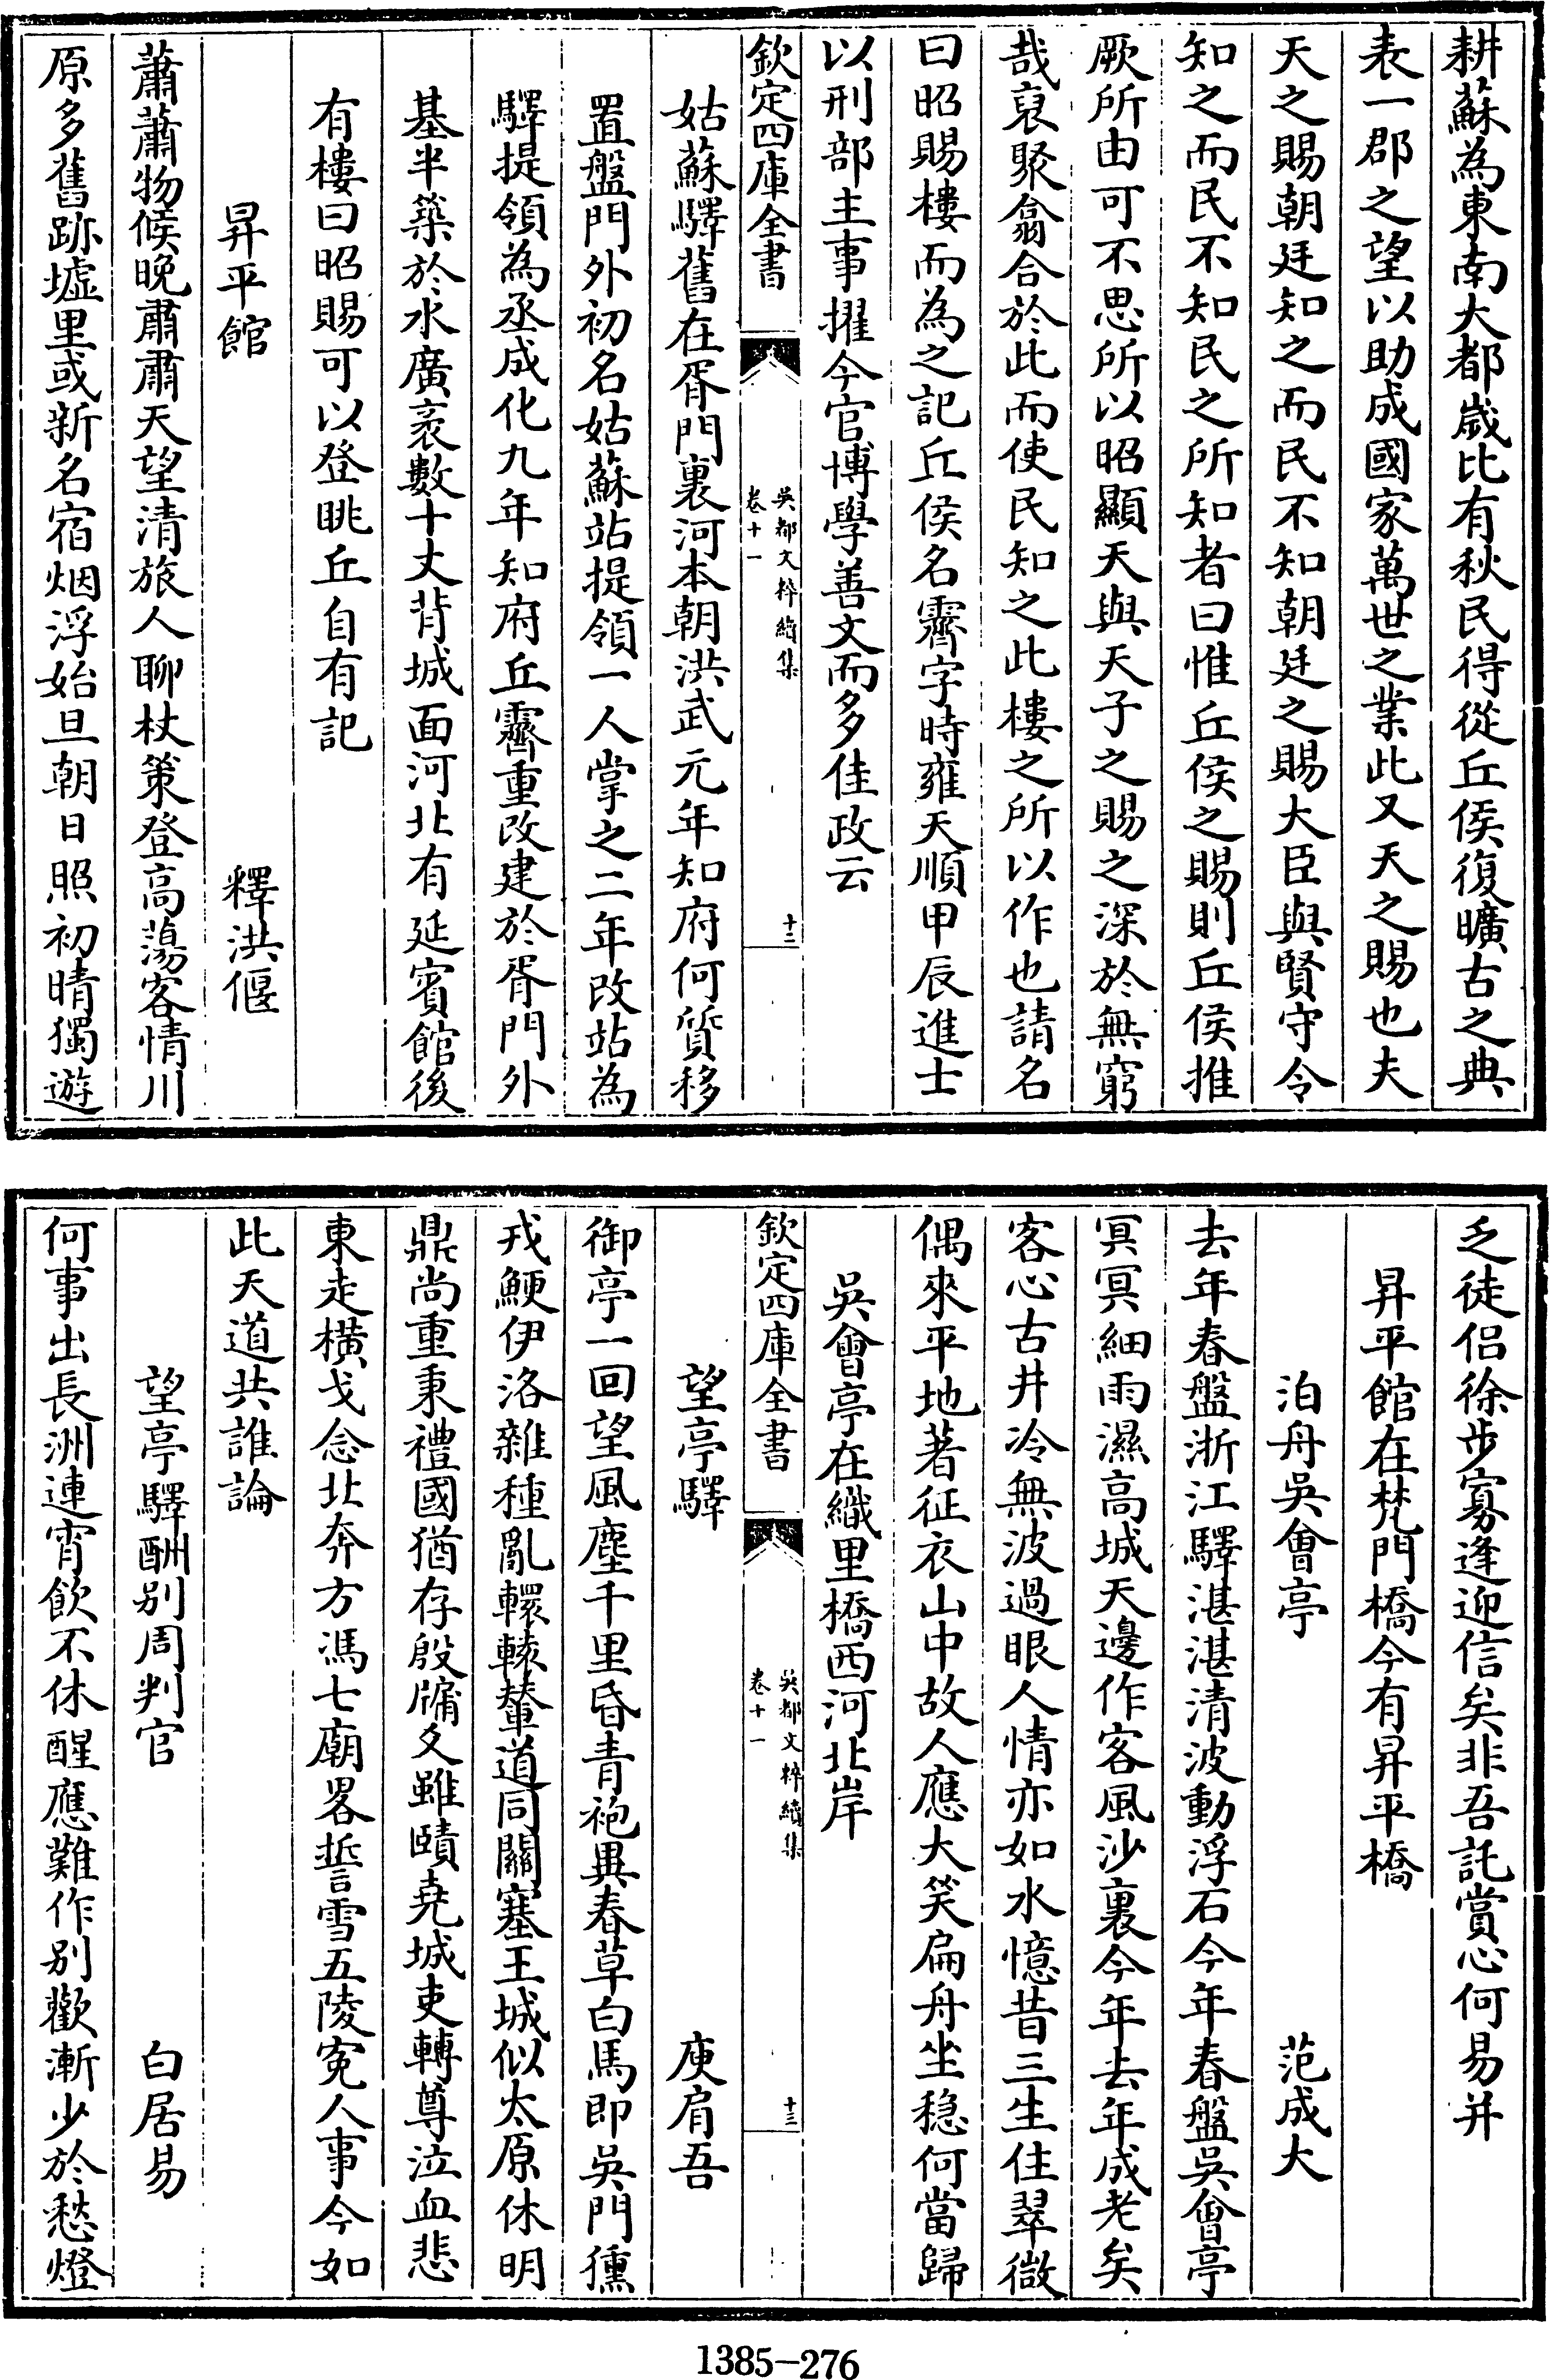 耕蘇為東南大都歲比有秋民得從丘侯復曠古之典
表一郡之望以助成國家萬世之業此又天之賜也夫
天之賜朝廷知之而民不知朝廷之賜大臣與賢守令
知之而民不知民之所知者曰惟丘侯之賜則丘侯推
厥所由可不思所以昭顯天與天子之賜之深於無窮
哉裒聚翕合於此而使民知之此樓之所以作也請名
曰昭賜樓而為之記丘侯名霽字時雍天順甲辰進士
以刑部主事擢今官博學善文而多佳政云
欽定四庫全書
吳都文粹續集
卷十一
十二
姑蘇驛舊在胥門裏河本朝洪武元年知府何質移
置盤門外初名姑蘇站提領一人掌之二年改站為
驛提領為丞成化九年知府丘霽重改建於胥門外
基半築於水廣袤數十丈背城面河北有延賓館後
有樓曰昭賜可以登眺丘自有記
昇平館 釋洪偃
蕭蕭物候晚肅肅天望清旅人聊杖策登高蕩客情川
原多舊跡墟里或新名宿烟浮始旦朝日照初晴獨遊
乏徒侣徐步寡逢迎信矣非吾託賞心何易并
昇平館在梵門橋今有昇平橋
泊舟吳會亭 范成大
去年春盤浙江驛湛湛清波動浮石今年春盤吳會亭
冥冥細雨濕高城天邊作客風沙裏今年去年成老矣
客心古井冷無波過眼人情亦如水憶昔三生住翠微
偶來平地著征衣山中故人應大笑扁舟坐穏何當歸
吳會亭在織里橋西河北岸
欽定四庫全書
吳都文粹續集
卷十一
十三
望亭驛 庾肩吾
御亭一回望風塵千里昏青袍異春草白馬即吳門獯
戎鯁伊洛雜種亂轘轅輦道同關塞王城似太原休明
鼎尚重秉禮國猶存殷牖爻雖賾堯城吏轉尊泣血悲
東走橫戈念北奔方馮七廟畧誓雪五陵寃人事今如
此天道共誰論
望亭驛酬别周判官 白居易
何事出長洲連宵飲不休醒應難作别歡漸少於愁燈
1385-276